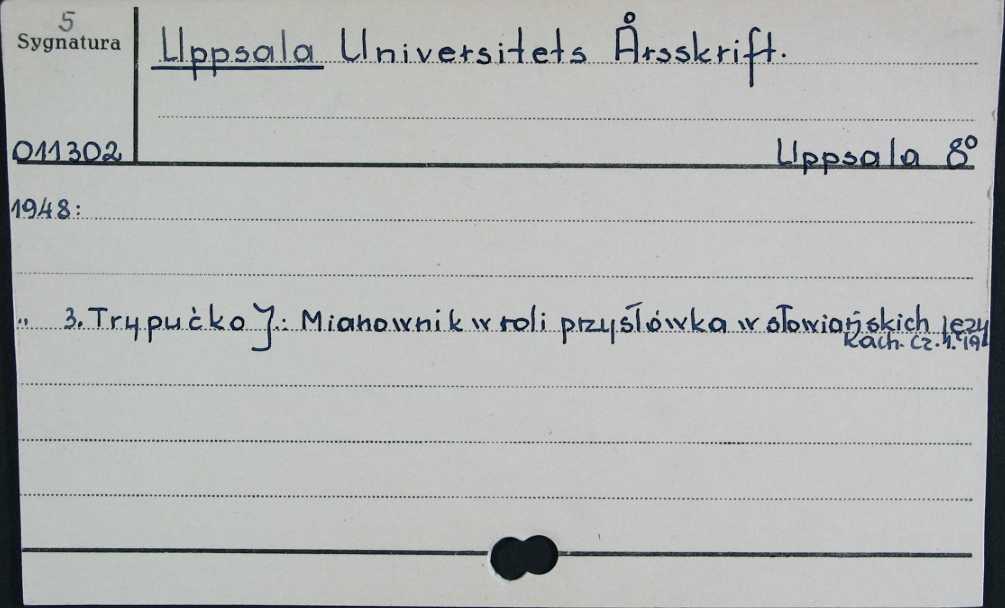 5
Sygnatura
Uppsala Universitets Årsskrift.
011302
Uppsala 8°
1948:
" 3. Trypućko J.: Mianownik w roli przysłówka w słowiańskich języ
kach. cz. 1. 194